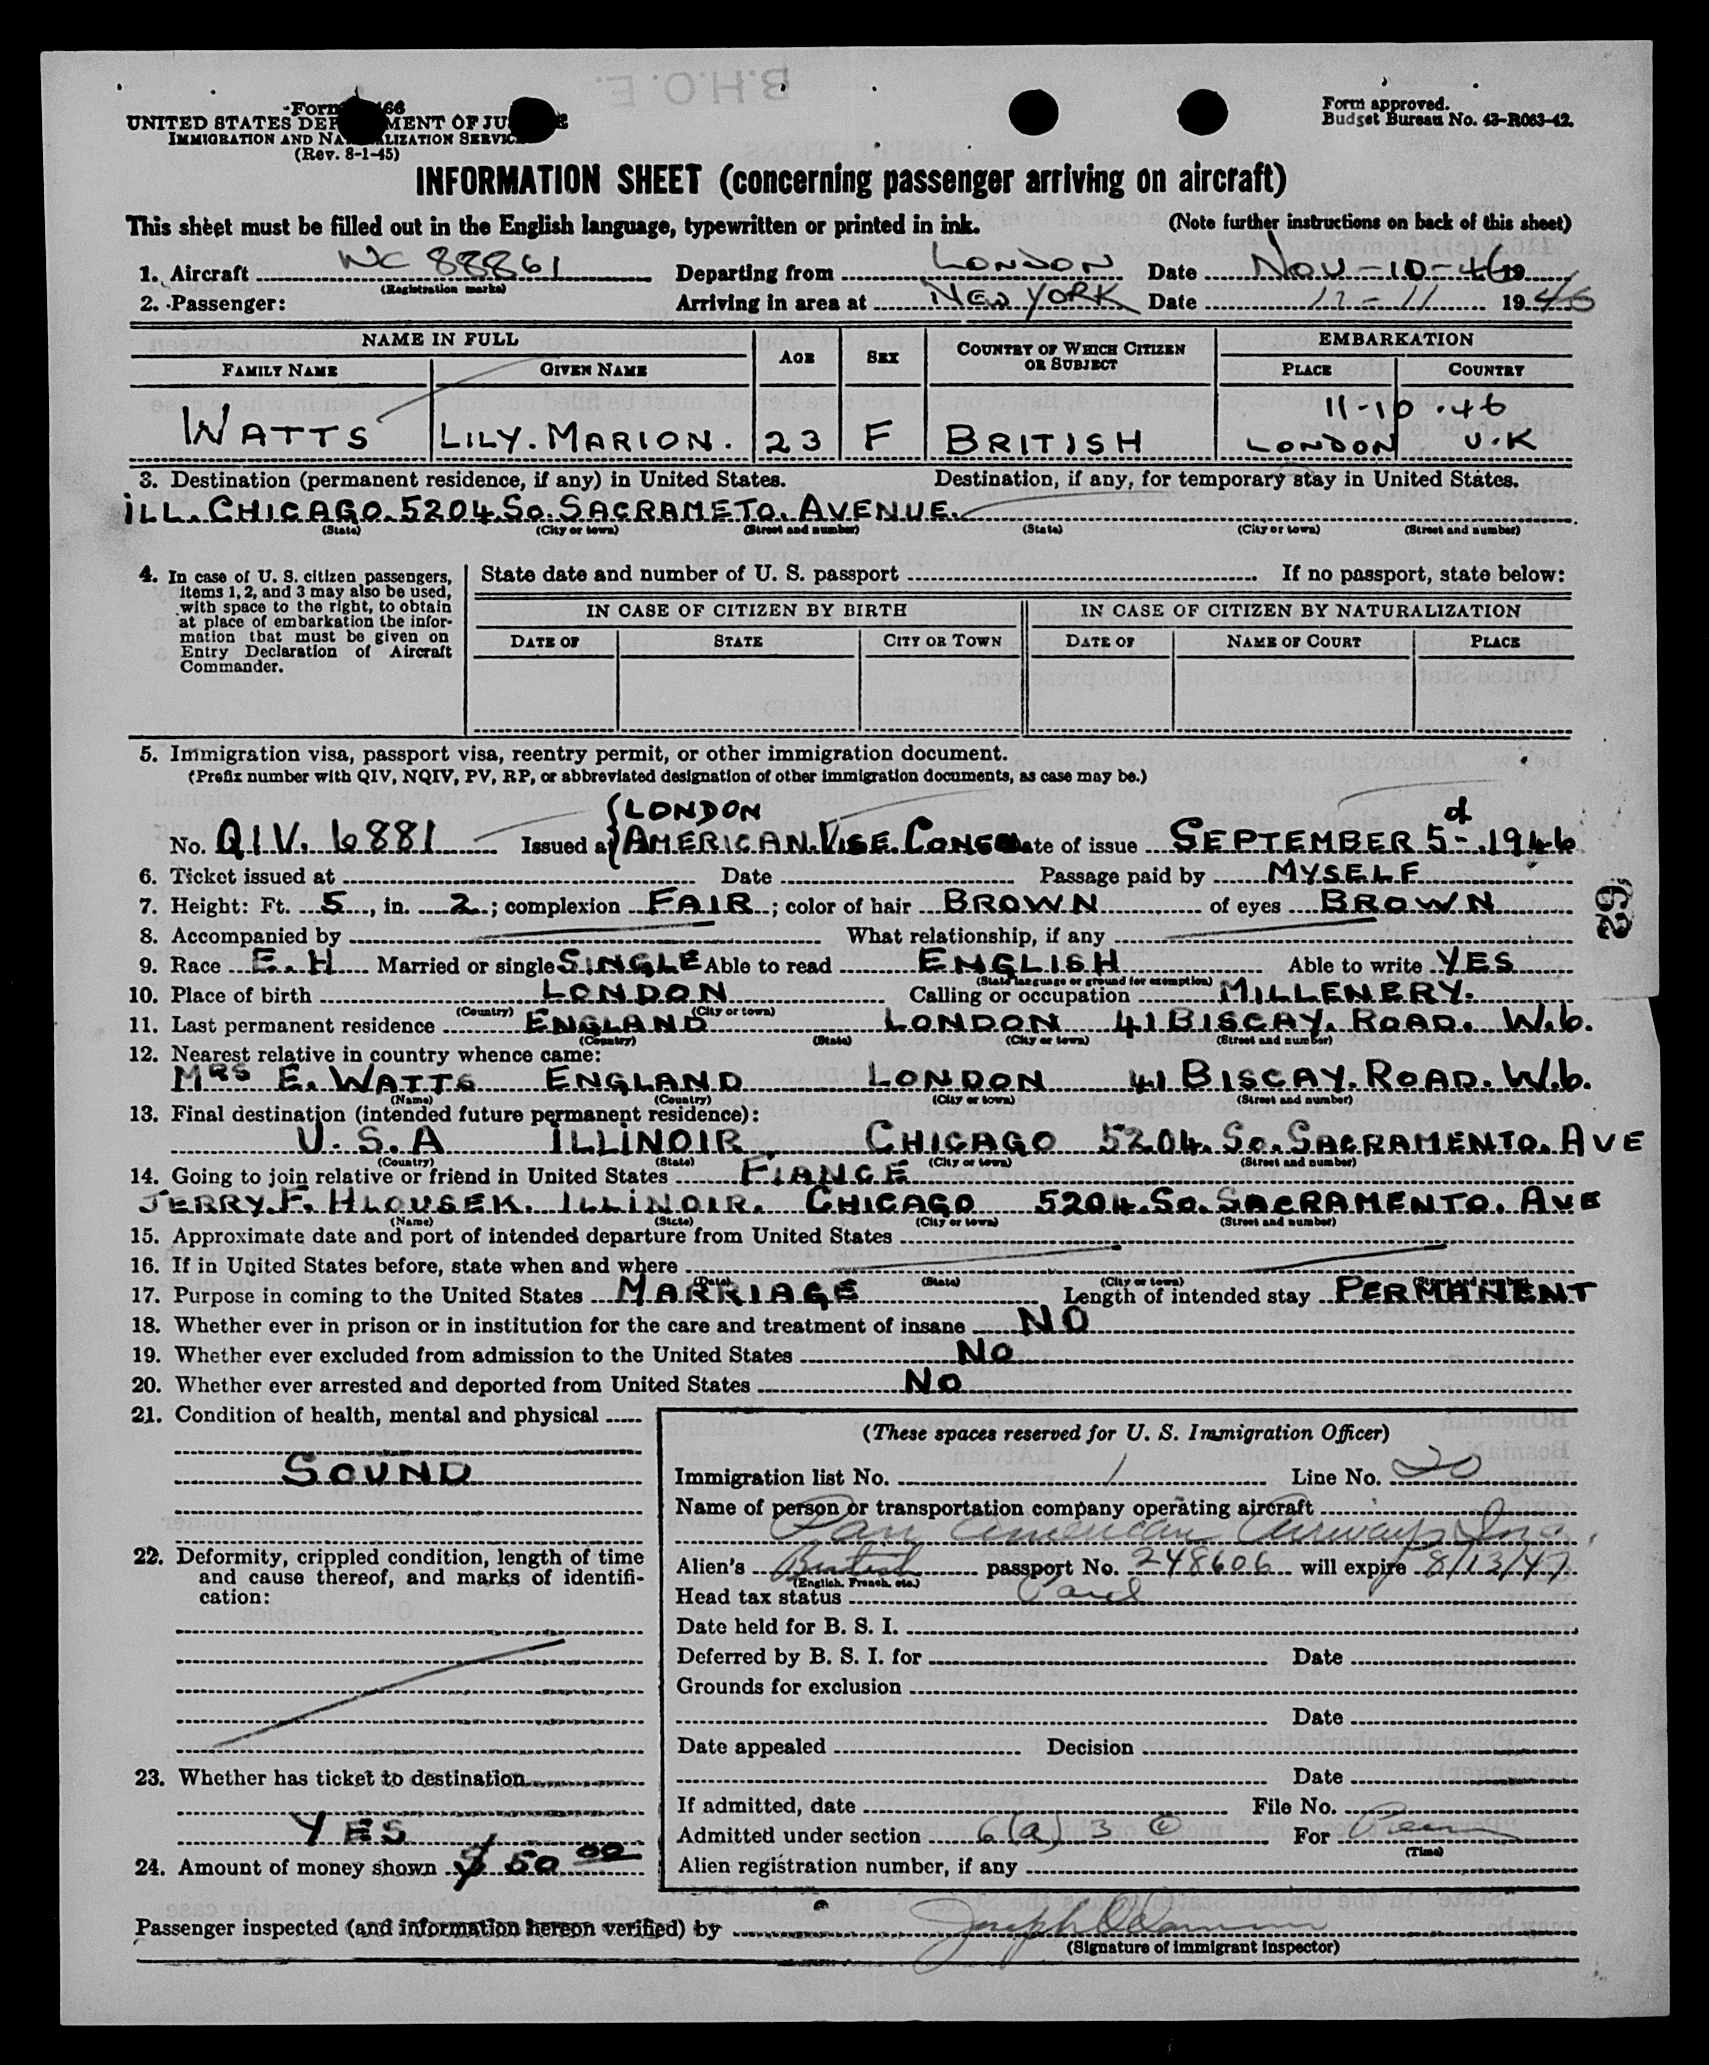 B.H.O.E.
Form 66
UNITED STATES DEP MENT OF JU E
IMMIGRATION AND NA ALIZATION SERVIC
(Rev. 8-1-45)
Form approved.
Budget Bureau No. 43-R063-42.
INFORMATION SHEET (concerning passenger arriving on aircraft)
This sheet must be filled out in the English language, typewritten or printed in ink. (Note further instructions on back of this sheet)
1. Aircraft NC 88861 Departing from LONDON Date Nov-10-46 19
(Registration marks)
2. Passenger: Arriving in area at NEW YORK Date 11-11 1946
NAME IN FULL AGE SEX COUNTRY OF WHICH CITIZEN OR SUBJECT EMBARKATION
FAMILY NAME GIVEN NAME PLACE COUNTRY
11-10.46
WATTS LILY. MARION. 23 F BRITISH LONDON U.K
3. Destination (permanent residence, if any) in United States. Destination, if any, for temporary stay in United States.
ILL. CHICAGO. 5204. So. SACRAMETO. AVENUE.
(State) (City or town) (Street and number) (State) (City or town) (Street and number)
4. In case of U. S. citizen passengers,
items 1, 2, and 3 may also be used,
with space to the right, to obtain
at place of embarkation the infor-
mation that must be given on
Entry Declaration of Aircraft
Commander.
State date and number of U. S. passport If no passport, state below:
IN CASE OF CITIZEN BY BIRTH IN CASE OF CITIZEN BY NATURALIZATION
DATE OF STATE CITY OR TOWN DATE OF NAME OF COURT PLACE
5. Immigration visa, passport visa, reentry permit, or other immigration document.
(Prefix number with QIV, NQIV, PV, RP, or abbreviated designation of other immigration documents, as case may be.)
LONDON
No. QIV. 6881 Issued at AMERICAN. VISE. CONSO Date of issue SEPTEMBER 5- .1946
6. Ticket issued at Date Passage paid by MYSELF
7. Height: Ft. 5, in. 2; complexion FAIR; color of hair BROWN of eyes BROWN
62
8. Accompanied by What relationship, if any
9. Race E.H Married or single SINGLE Able to read ENGLISH Able to write YES
(State language or ground for exemption)
10. Place of birth LONDON Calling or occupation MILLENERY.
(Country) (City or town)
11. Last permanent residence ENGLAND LONDON 41 BISCAY. ROAD. W.6.
(Country) (State) (City or town) (Street and number)
12. Nearest relative in country whence came:
MRS E. WATTS ENGLAND LONDON 41 BISCAY. ROAD. W.6.
(Name) (Country) (City or town) (Street and number)
13. Final destination (intended future permanent residence):
U.S.A ILLINOIR CHICAGO 5204. So. SACRAMENTO. AVE
(Country) (State) (City or town) (Street and number)
14. Going to join relative or friend in United States FIANCE
JERRY. F. HLOUSEK. ILLINOIR. CHICAGO 5204. So. SACRAMENTO. AVE
(Name) (State) (City or town) (Street and number)
15. Approximate date and port of intended departure from United States
16. If in United States before, state when and where
(Date) (State) (City or town) (Street and number)
17. Purpose in coming to the United States MARRIAGE Length of intended stay PERMANENT
18. Whether ever in prison or in institution for the care and treatment of insane NO
19. Whether ever excluded from admission to the United States No
20. Whether ever arrested and deported from United States No
21. Condition of health, mental and physical
SOUND
22. Deformity, crippled condition, length of time
and cause thereof, and marks of identifi-
cation:
23. Whether has ticket to destination
YES
24. Amount of money shown $ 50 00
(These spaces reserved for U. S. Immigration Officer)
Immigration list No. 1 Line No. 20
Name of person or transportation company operating aircraft
Pan American Airways Inc.
Alien's British passport No. 248606 will expire 8/13/47
(English, French, etc.)
Head tax status Paid
Date held for B. S. I.
Deferred by B. S. I. for Date
Grounds for exclusion
Date
Date appealed Decision
Date
If admitted, date File No.
Admitted under section 6(a) 3 For Perm
(Time)
Alien registration number, if any
Passenger inspected (and information hereon verified) by Joseph
(Signature of immigrant inspector)